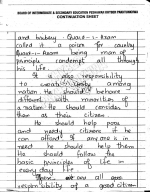 BOARD OF INTERMEDIATE & SECONDARY EDUCATION
CONTINUATION SHEET
and Quaid-i-Azam
called it a voice for equality
Quaid-i-Azam being man of
principle contempt all through
his life.
It is also responsibility
to unity among
nation. He should behave
different with minorities of
a nation. He should consider
them as their citizens.
He should help poor
and needy citizens if he
can afford. If anyone is in
need he should help them
He should follow the
basic principles of life in
every day life
These are all
responsibility of a good citizen